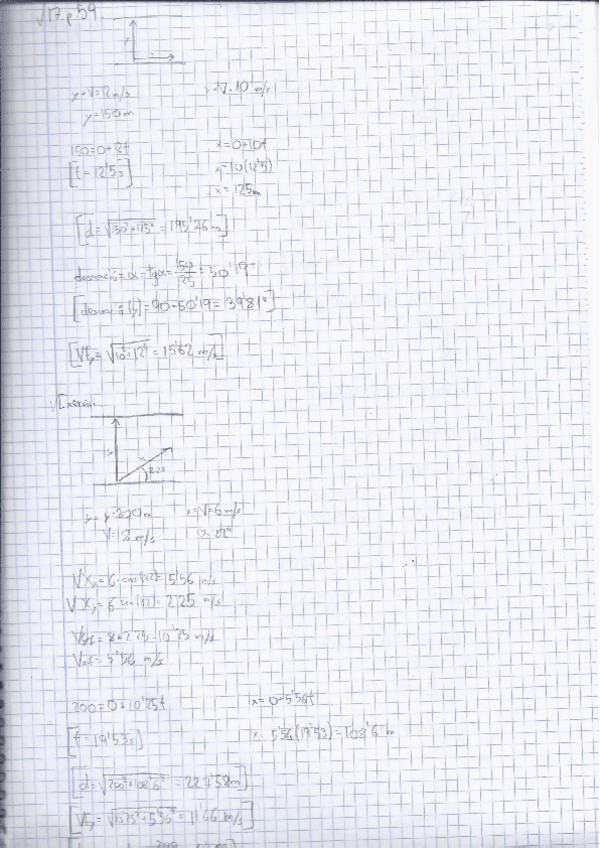 17 p.59
y→V=12m/s
V=10 m/s
y=150m
150=0+12t
x=0+10t
[t=12'5s]
x=10(12'5)
x=125m
[d=√150²+125²=195'26m]
desviació α=tgα=150/125=50'19°
[desviació (y)=90-50'19=39'81°]
[Vf=√10²+12²=15'62 m/s]
Exercici
y
x
y=200m
V=6 m/s
α=22°
Vx=6·cos(22)=5'56 m/s
6·sen(22)=2'25 m/s
8+2'25=10'25 m/s
5'56 m/s
200=0+10'25t
x=0+5'56t
[t=19'53s]
x=5'56(19'53)=108'6 m
[d=√200²+108'6²=227'58m]
=√10'25²+5'56²=11'66 m/s]